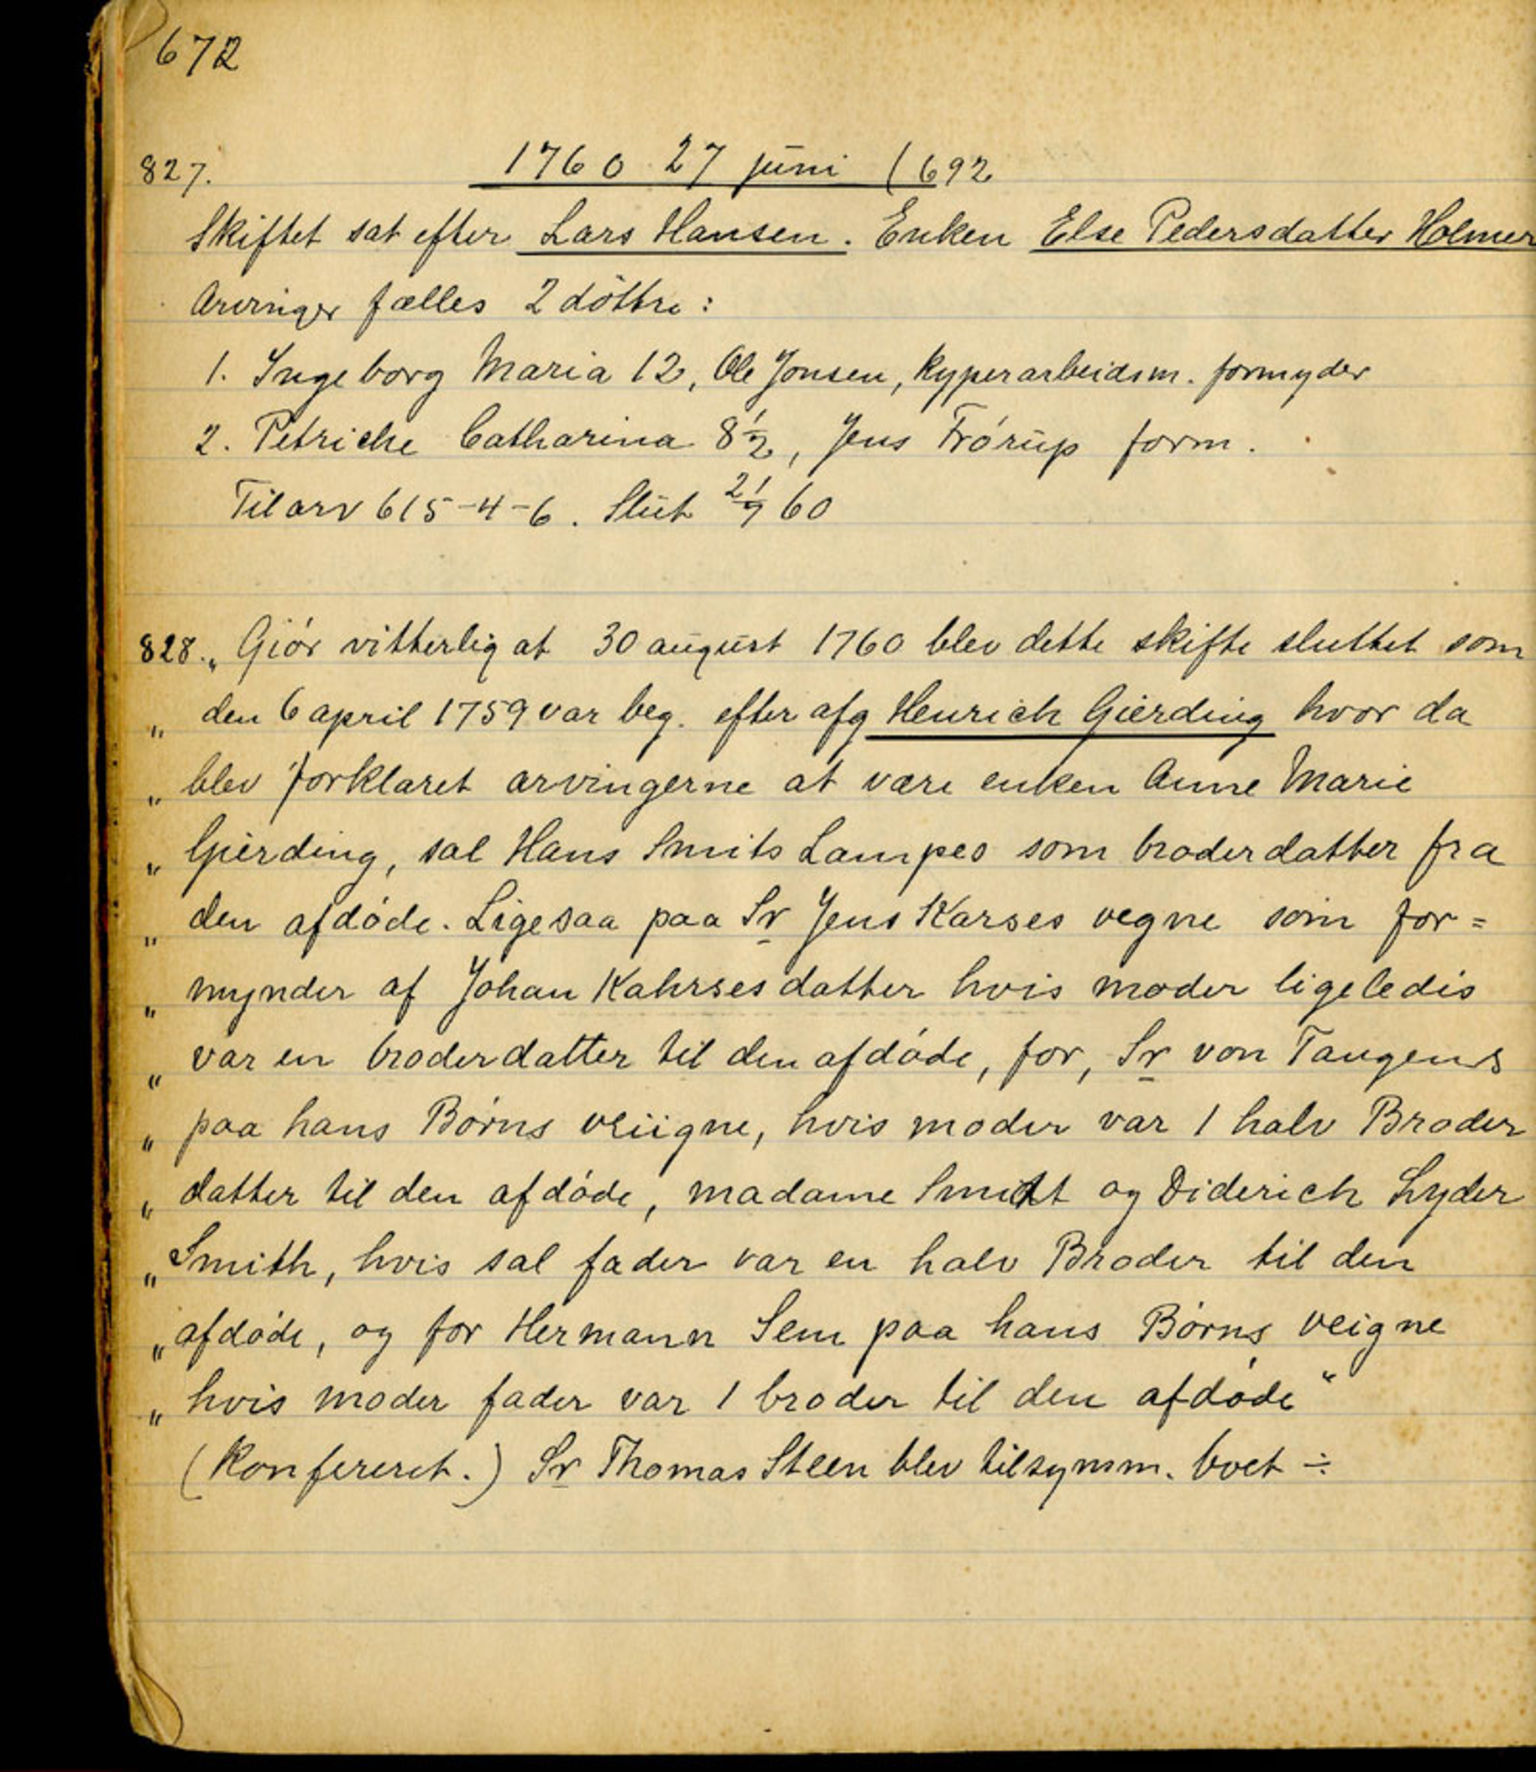 672
827. 1760 27 juni (692
Skiftet sat efter Lars Hansen. Enken Else Pedersdatter Holmer
Arvinger fælles 2 döttre:
1. Ingeborg Maria 12, Ole Jonsen, kyperarbeidsm. formyder
2. Petriche Catharina 8½, Jens Frórup form.
Til arv 615-4-6. Slut 21/7 60
828. „ Giór vitterlig at 30 august 1760 blev dette skifte sluttet som
„ den 6 april 1759 var beg. efter afg Henrich Gierding hvor da
„ blev forklaret arvingerne at være enken Anne Marie
„ Gierding, sal Hans Smits Lampes som broderdatter fra
„ den afdóde. Ligesaa paa Sr Jens Karses vegne som for=
„ mynder af Johan Kahrses datter hvis moder ligeledis
„ var en broderdatter til den afdóde, for, Sr von Tangens
„ paa hans Bórns veiigne, hvis moder var 1 halv Broder
„ datter til den afdóde, madame Smidt og Diderich Lyder
„ Smith, hvis sal fader var en halv Broder til den
„ afdóde, og for Hermann Sem paa hans Bórns veigne
„ hvis moder fader var 1 broder til den afdóde“
(Konfereret.) Sr Thomas Steen blev tilsynsm. boet ÷